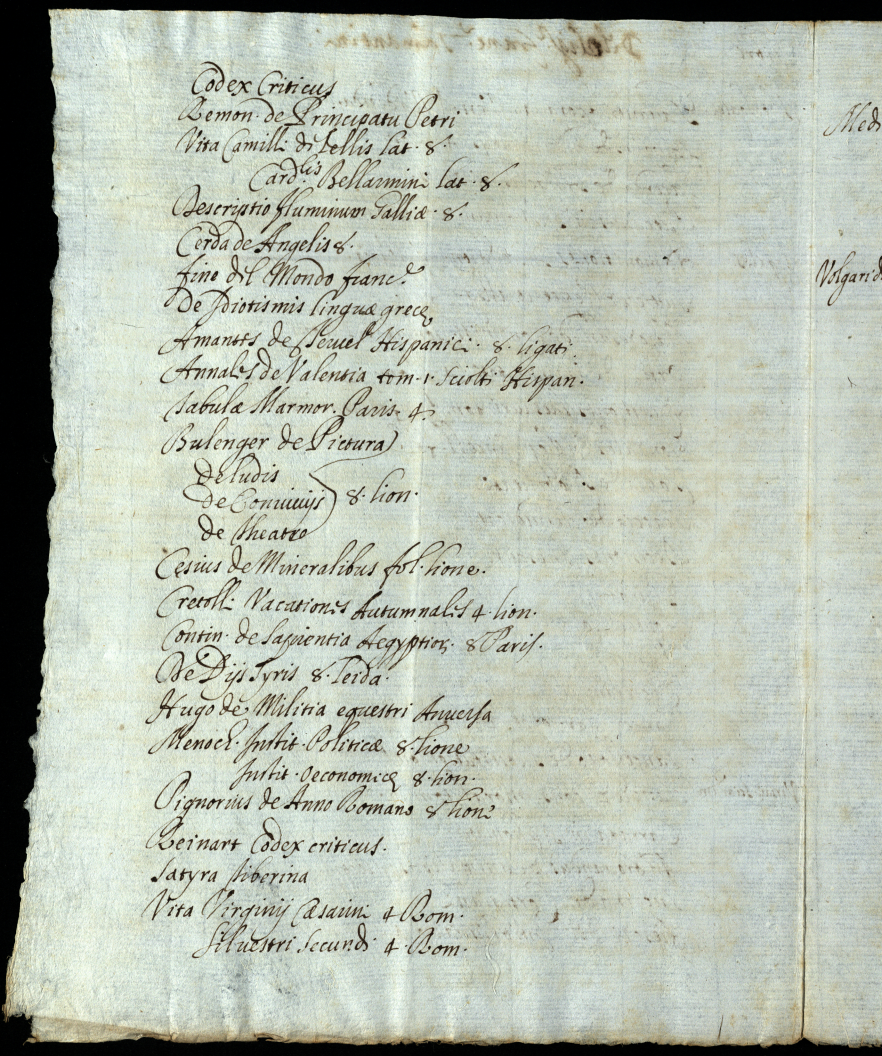 Codex Criticus
Remon. de Principatu Petri
Vita Camilli de Lellis lat. 8.
Card.lis Bellarmini lat. 8.
Descriptio fluminum Galliæ. 8.
Cerda de Angelis 8.
fine del Mondo franc.e
De Idiotismis linguæ grecę
Amantes de Teruel Hispanici. 8. ligati
Annales de Valentia tom. 1. sciolti Hispan.
Tabulæ Marmor. Paris. 4.
Bulenger de Pictura
de ludis
de Conuiuijs 8. lion.
de Theatro
Cęsius de Mineralibus fol. lione.
Cresoll. Vacationes Autumnales 4. lion.
Contin. de Sapientia Aegyptior. 8 Paris.
De Dijs Syris 8. Leida.
Hugo de Militia equestri Anuersa
Menoch. Instit. Politicæ 8. lione
Instit. oeconomicę 8. lion.
Pignorius de Anno Romano 8 lione
Reinart Codex criticus.
Satyra Tiberina
Vita Virginij Cæsarini 4 Rom.
Siluestri Secundi 4. Rom.
Med
Volgari d